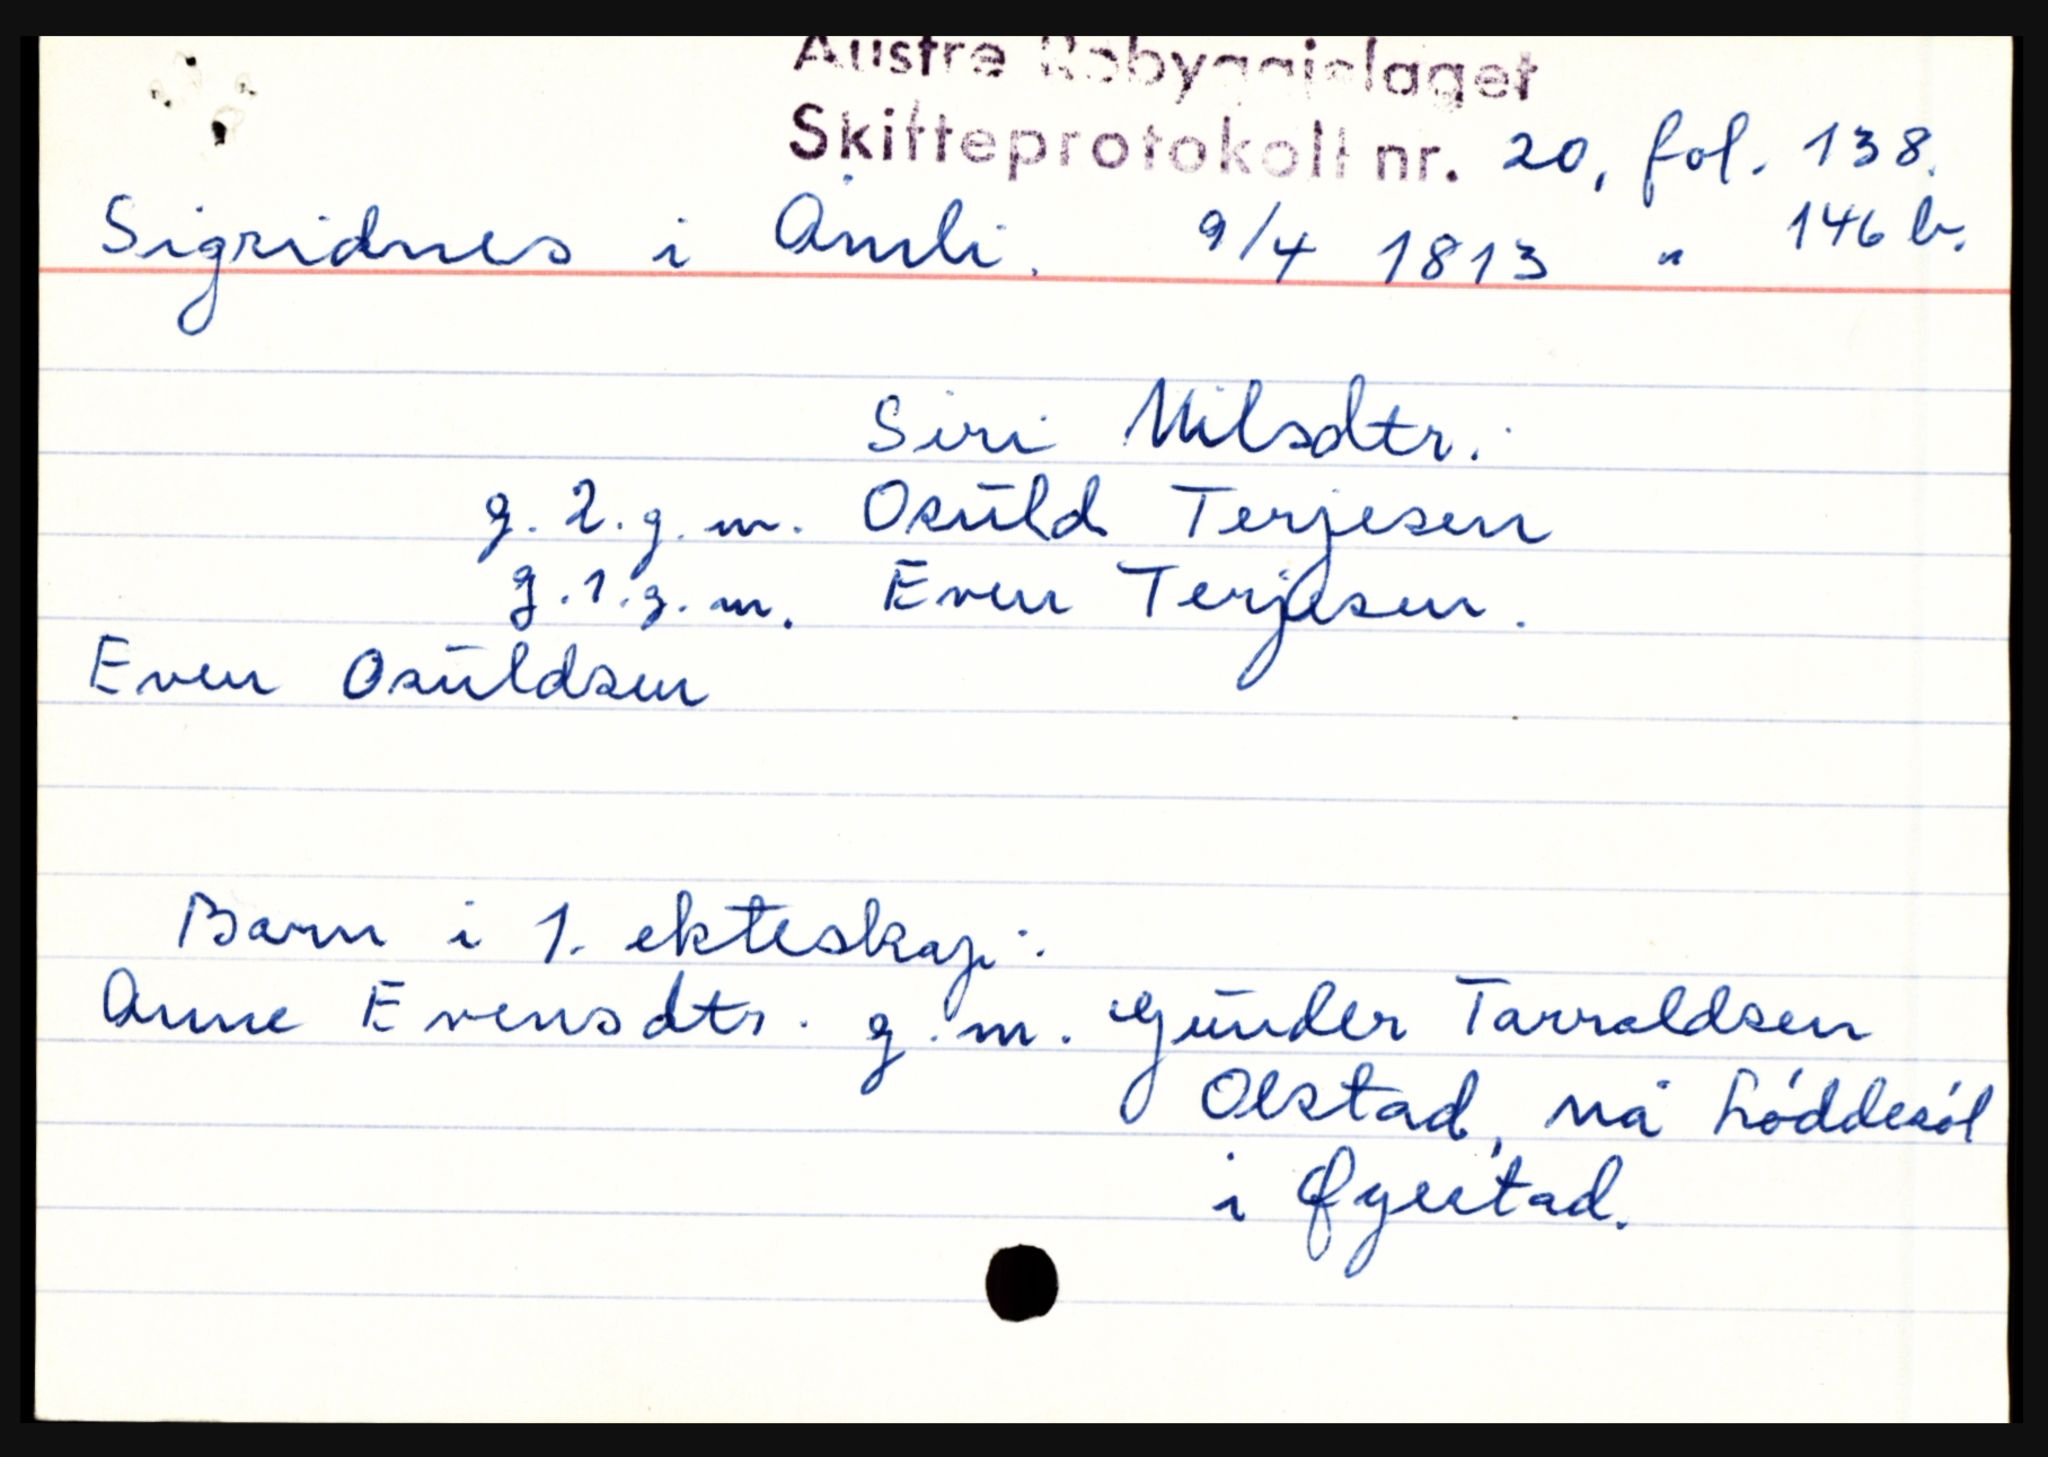 Austre Robyggjelaget
Skifteprotokoll nr. 20, fol. 138.
Sigridnes i Åmli. 9/4 1813 " 146 b.
Siri Nilsdtr.
g. 2. g. m. Osuld Terjesen
g. 1. g. m. Even Terjesen.
Even Osuldsen
Barn i 1. ekteskap:
Anne Evensdtr. g. m. Gunder Tarraldsen
Olstad, nå Løddesøl
i Øyestad.